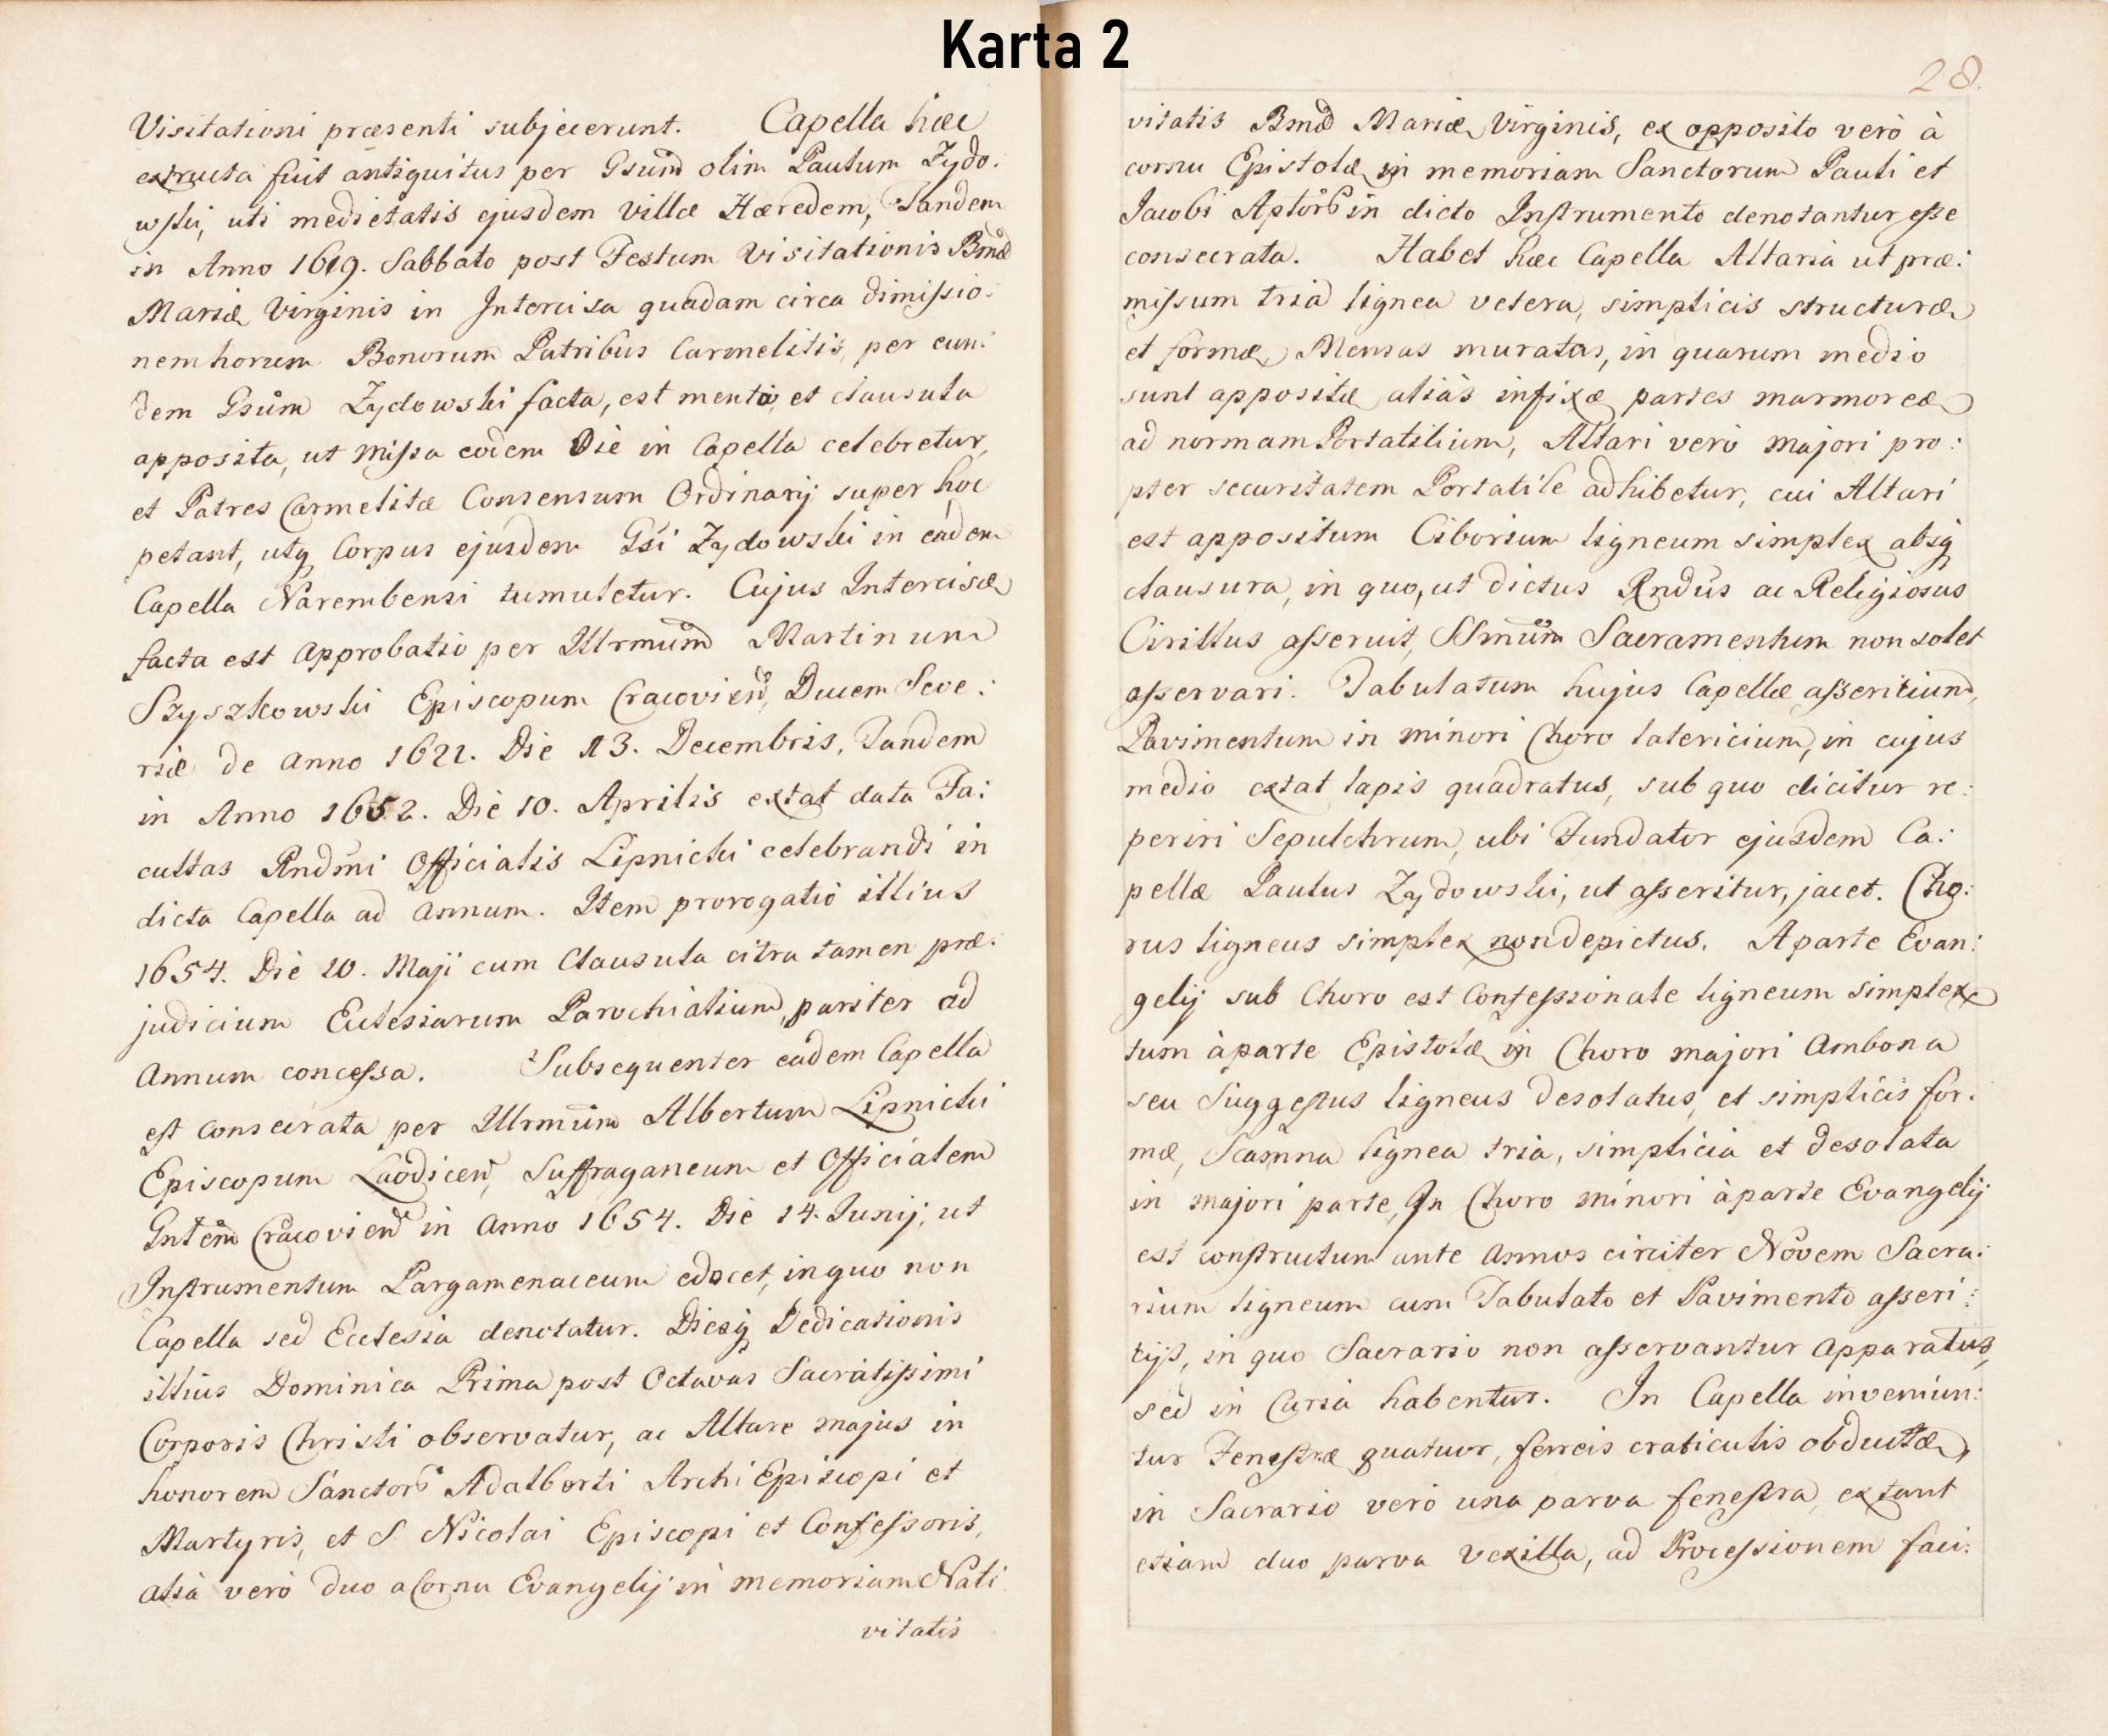 Karta 2
Visitationi præsenti subjecerunt. Capella hæc
extructa fuit antiquitus per Gsum olim Paulum Zydo:
wski, uti medietatis ejusdem villæ Hæredem, Tandem
in Anno 1619. Sabbato post Festum Visitationis Bmæ
Mariæ Virginis in Intercisa quadam circa dimissio:
nem horum Bonorum Patribus Carmelitis, per eun:
dem Gsum Zydowski facta, est mentio, et clausula
apposita, ut Missa eodem Die in Capella celebretur,
et Patres Carmelitæ Consensum Ordinarij super hoc
petant, utq Corpus ejusdem Gsi Zydowski in eadem
Capella Narembensi tumuletur. Cujus Intercisæ
facta est Approbatio per Illrmum Martinum
Szyszkowski Episcopum Cracovien, Ducem Seve:
riæ de Anno 1621. Die 13. Decembris, Tandem
in Anno 1652. Die 10. Aprilis extat data Fa:
cultas Rndmi Officialis Lipnicki celebrandi in
dicta Capella ad Annum. Item prorogatio illius
1654. Die 20. Maji cum Clausula citra tamen præ:
judicium Ecclesiarum Parochialium, pariter ad
Annum concessa. Subsequenter eadem Capella
est consecrata per Illrmum Albertum Lipnicki
Episcopum Laodicen, Suffraganeum et Officialem
Gntem Cracovien in Anno 1654. Die 14. Iunij, ut
Instrumentum Pargamenaceum edocet, in quo non
Capella sed Ecclesia denotatur. Diesq Dedicationis
illius Dominica Prima post Octavas Sacratissimi
Corporis Christi observatur, ac Altare majus in
honorem Sanctor Adalberti Archi Episcopi et
Martyris, et S. Nicolai Episcopi et Confessoris,
alia verò duo a Cornu Evangelij in memoriam Nati
vitatis
28.
vitatis Bmæ Mariæ Virginis, ex opposito verò à
cornu Epistolæ in memoriam Sanctorum Pauli et
Jacobi Aptor in dicto Instrumento denotantur esse
consecrata. Habet hæc Capella Altaria ut præ:
missum tria lignea vetera, simplicis structuræ
et formæ, Mensas muratas, in quarum medio
sunt appositæ aliàs infixæ partes marmoreæ
ad normam Portatilium, Altari verò majori pro:
pter securitatem Portatile adhibetur, cui Altari
est appositum Ciborium ligneum simplex absq
clausura, in quo, ut dictus Rndus ac Religiosus
Cirillus asseruit, SSmum Sacramentum non solet
asservari. Tabulatum hujus Capellæ asseritium,
Pavimentum in minori Choro latericium, in cujus
medio extat lapis quadratus, sub quo dicitur re:
periri Sepulchrum, ubi Fundator ejusdem Ca:
pellæ Paulus Zydowski, ut asseritur, jacet. Cho:
rus ligneus simplex non depictus. A parte Evan:
gelij sub Choro est Confessionale ligneum simplex,
tum à parte Epistolæ in Choro majori Ambona
seu Suggestus ligneus desolatus, et simplicis for:
mæ, Scamna lignea tria, simplicia et desolata
in majori parte, In Choro minori à parte Evangelij
est constructum ante Annos circiter Novem Sacra:
rium ligneum cum Tabulato et Pavimento asseri:
tijs, in quo Sacrario non asservantur Apparatus,
sed in Curia habentur. In Capella inveniun:
tur Fenestræ quatuor, ferreis craticulis obductæ,
in Sacrario verò una parva fenestra, extant
etiam duo parva Vexilla, ad Processionem faci: